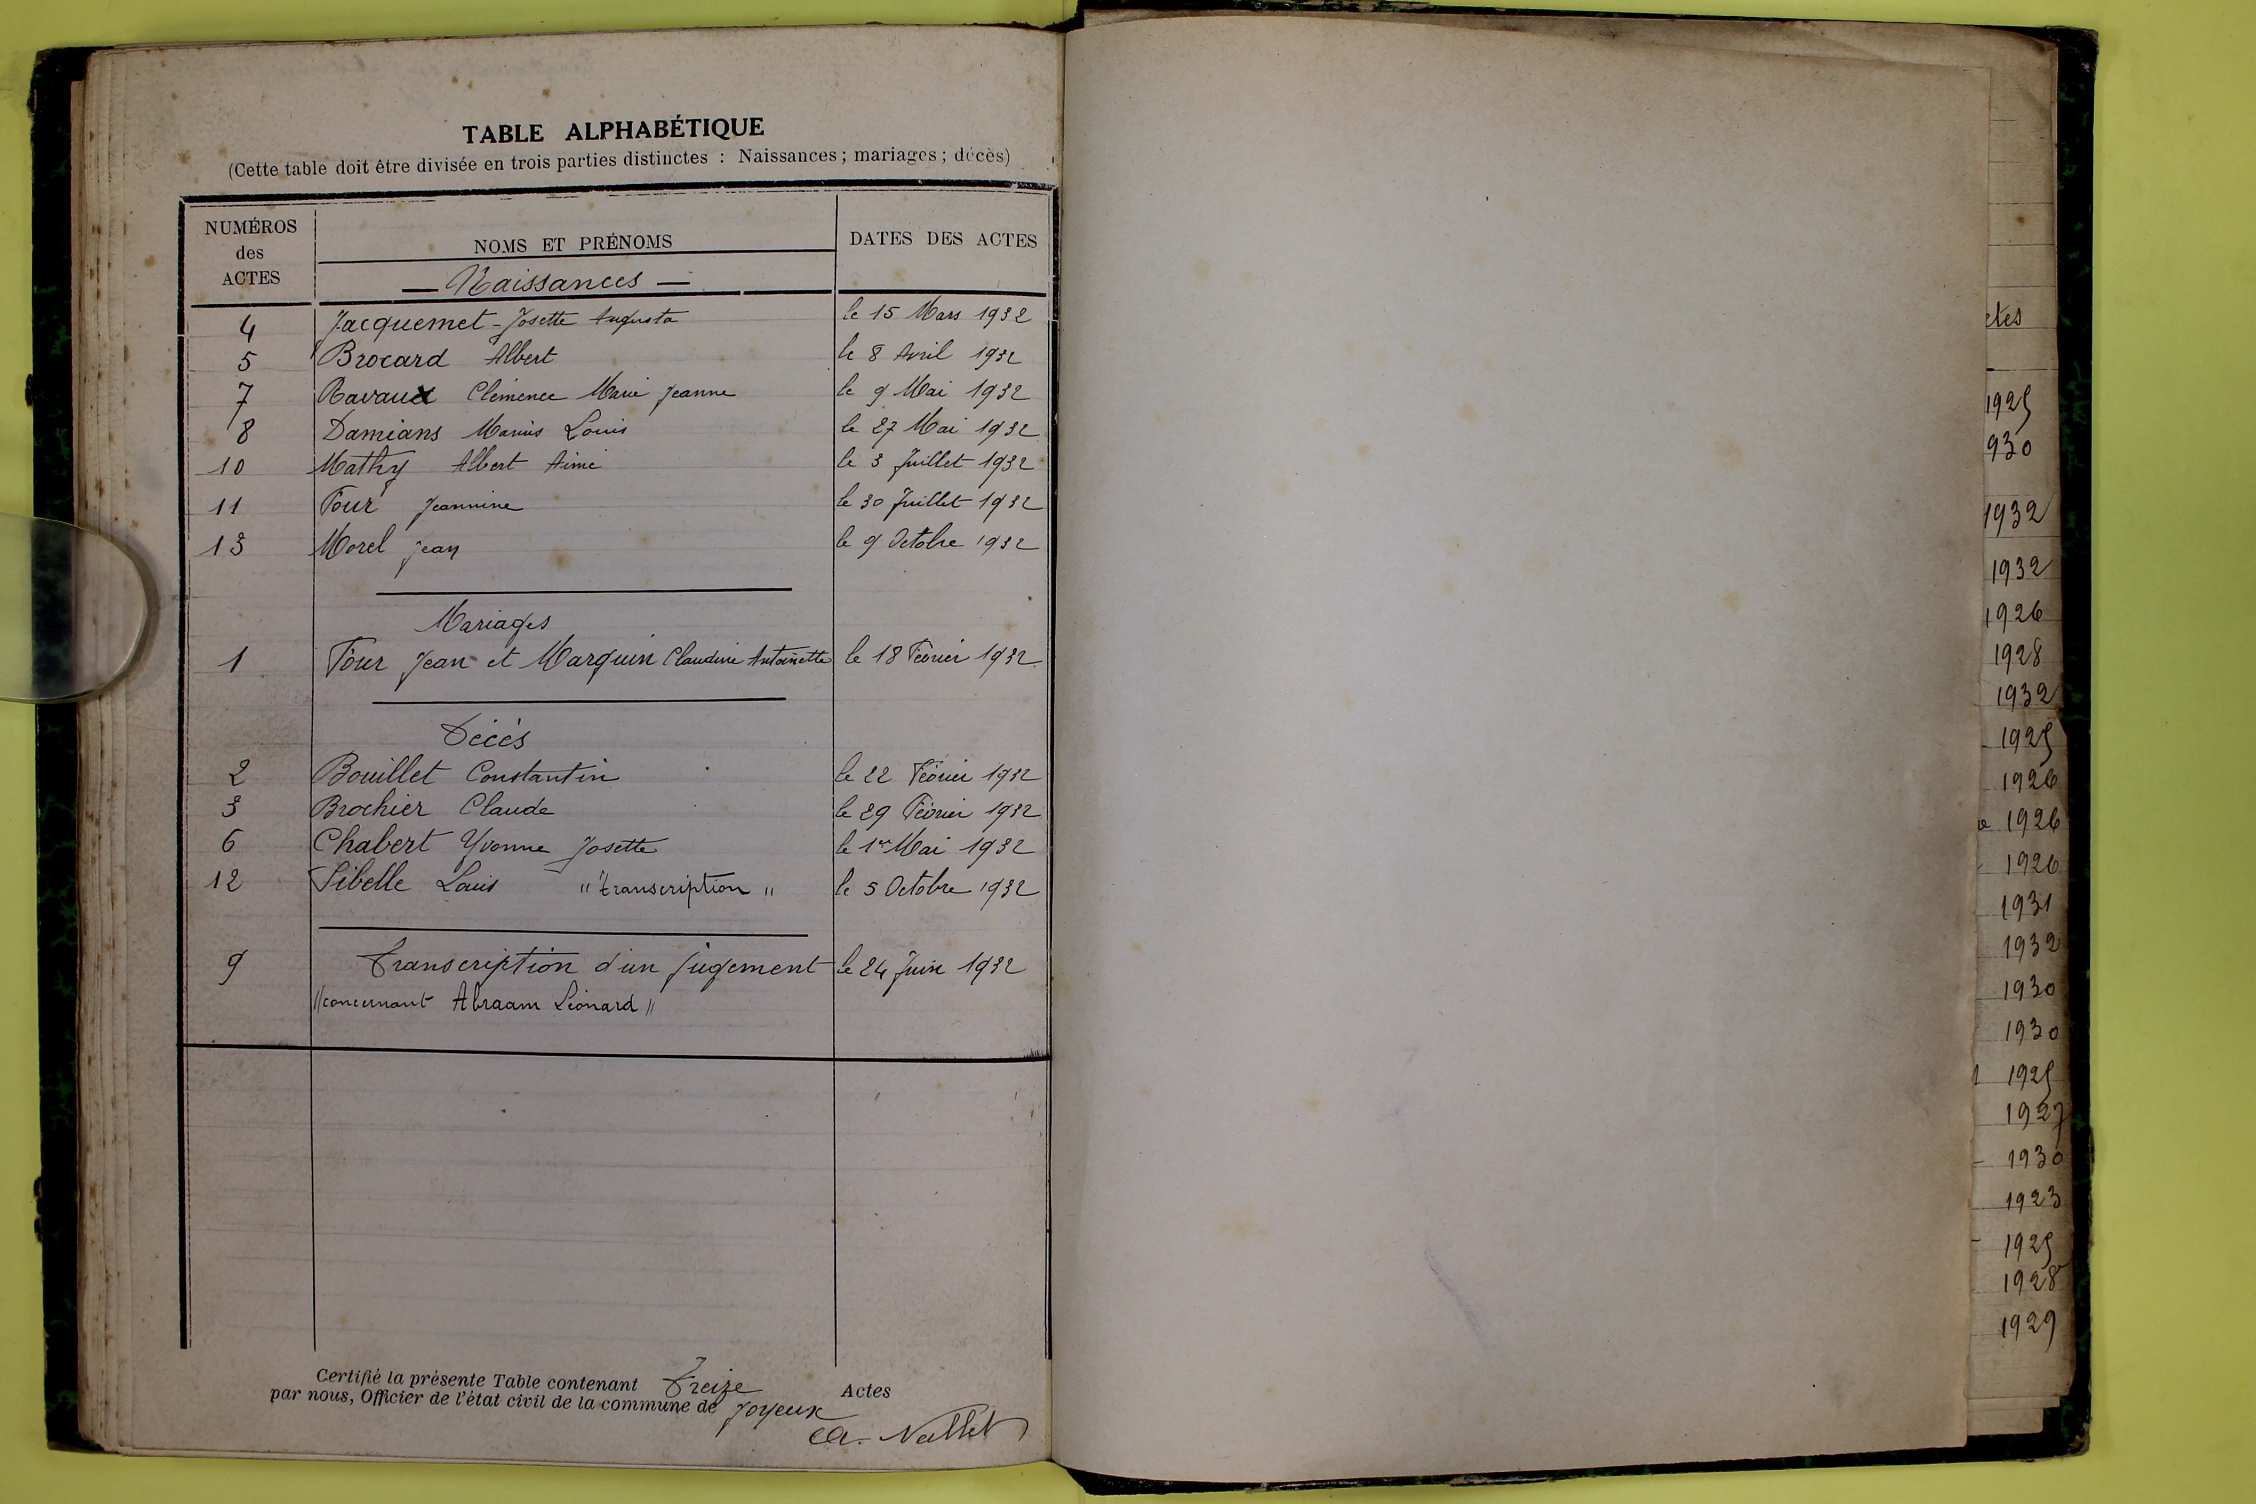 TABLE ALPHABÉTIQUE
(Cette table doit être divisée en trois parties distinctes : Naissances ; mariages ; décès)
NUMÉROS des ACTES NOMS ET PRÉNOMS DATES DES ACTES
— Naissances —
4 Jacquemet - Josette Augusta le 15 Mars 1932
5 Brocard Albert le 8 Avril 1932
7 Ravaux Clémence Marie Jeanne le 9 Mai 1932
8 Damians Marius Louis le 27 Mai 1932
10 Mathy Albert Aimé le 3 Juillet 1932
11 Four Jeannine le 30 Juillet 1932
13 Morel Jean le 9 Octobre 1932
Mariages
1 Four Jean et Marguin Claudine Antoinette le 18 Février 1932
Décès
2 Bouillet Constantin le 22 Février 1932
3 Brochier Claude le 29 Février 1932
6 Chabert Yvonne Josette le 1er Mai 1932
12 Sibelle Louis "transcription" le 5 Octobre 1932
9 Transcription d'un jugement le 24 Juin 1932
"concernant Abraam Léonard"
Certifié la présente Table contenant Treize Actes
par nous, Officier de l'état civil de la commune de Joyeux
1925
930
1932
1932
1926
1928
1932
1925
1926
1926
1926
1931
1932
1930
1930
1925
1927
1930
1923
1925
1928
1929